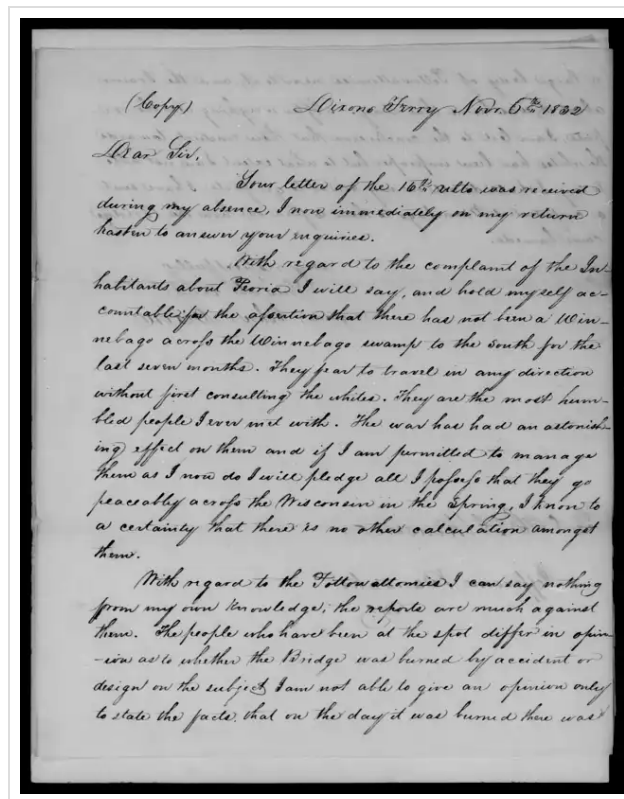 (Copy) Dixons Ferry Novr. 6th 1832
Dear Sir,
Your letter of the 16th ulto was received
during my absence, I now immediately on my return
hasten to answer your enquiries.
With regard to the complaint of the In-
habitants about Peoria I will say, and hold myself ac-
countable for the assertion that there has not been a Win-
nebago across the Winnebago swamp to the south for the
last seven months. They fear to travel in any direction
without first consulting the whites. They are the most hum-
bled people I ever met with. The war has had an astonish-
ing effect on them and if I am permitted to manage
them as I now do I will pledge all I possess that they go
peaceably across the Wisconsin in the Spring, I know to
a certainty that there is no other calculation amongst
them.
With regard to the Pottowattomies I can say nothing
from my own knowledge, the reports are much against
them. The people who have been at the spot differ in opin-
-ion as to whether the Bridge was burned by accident or
design on the subject I am not able to give an opinion only
to state the facts, that on the day it was burned there was